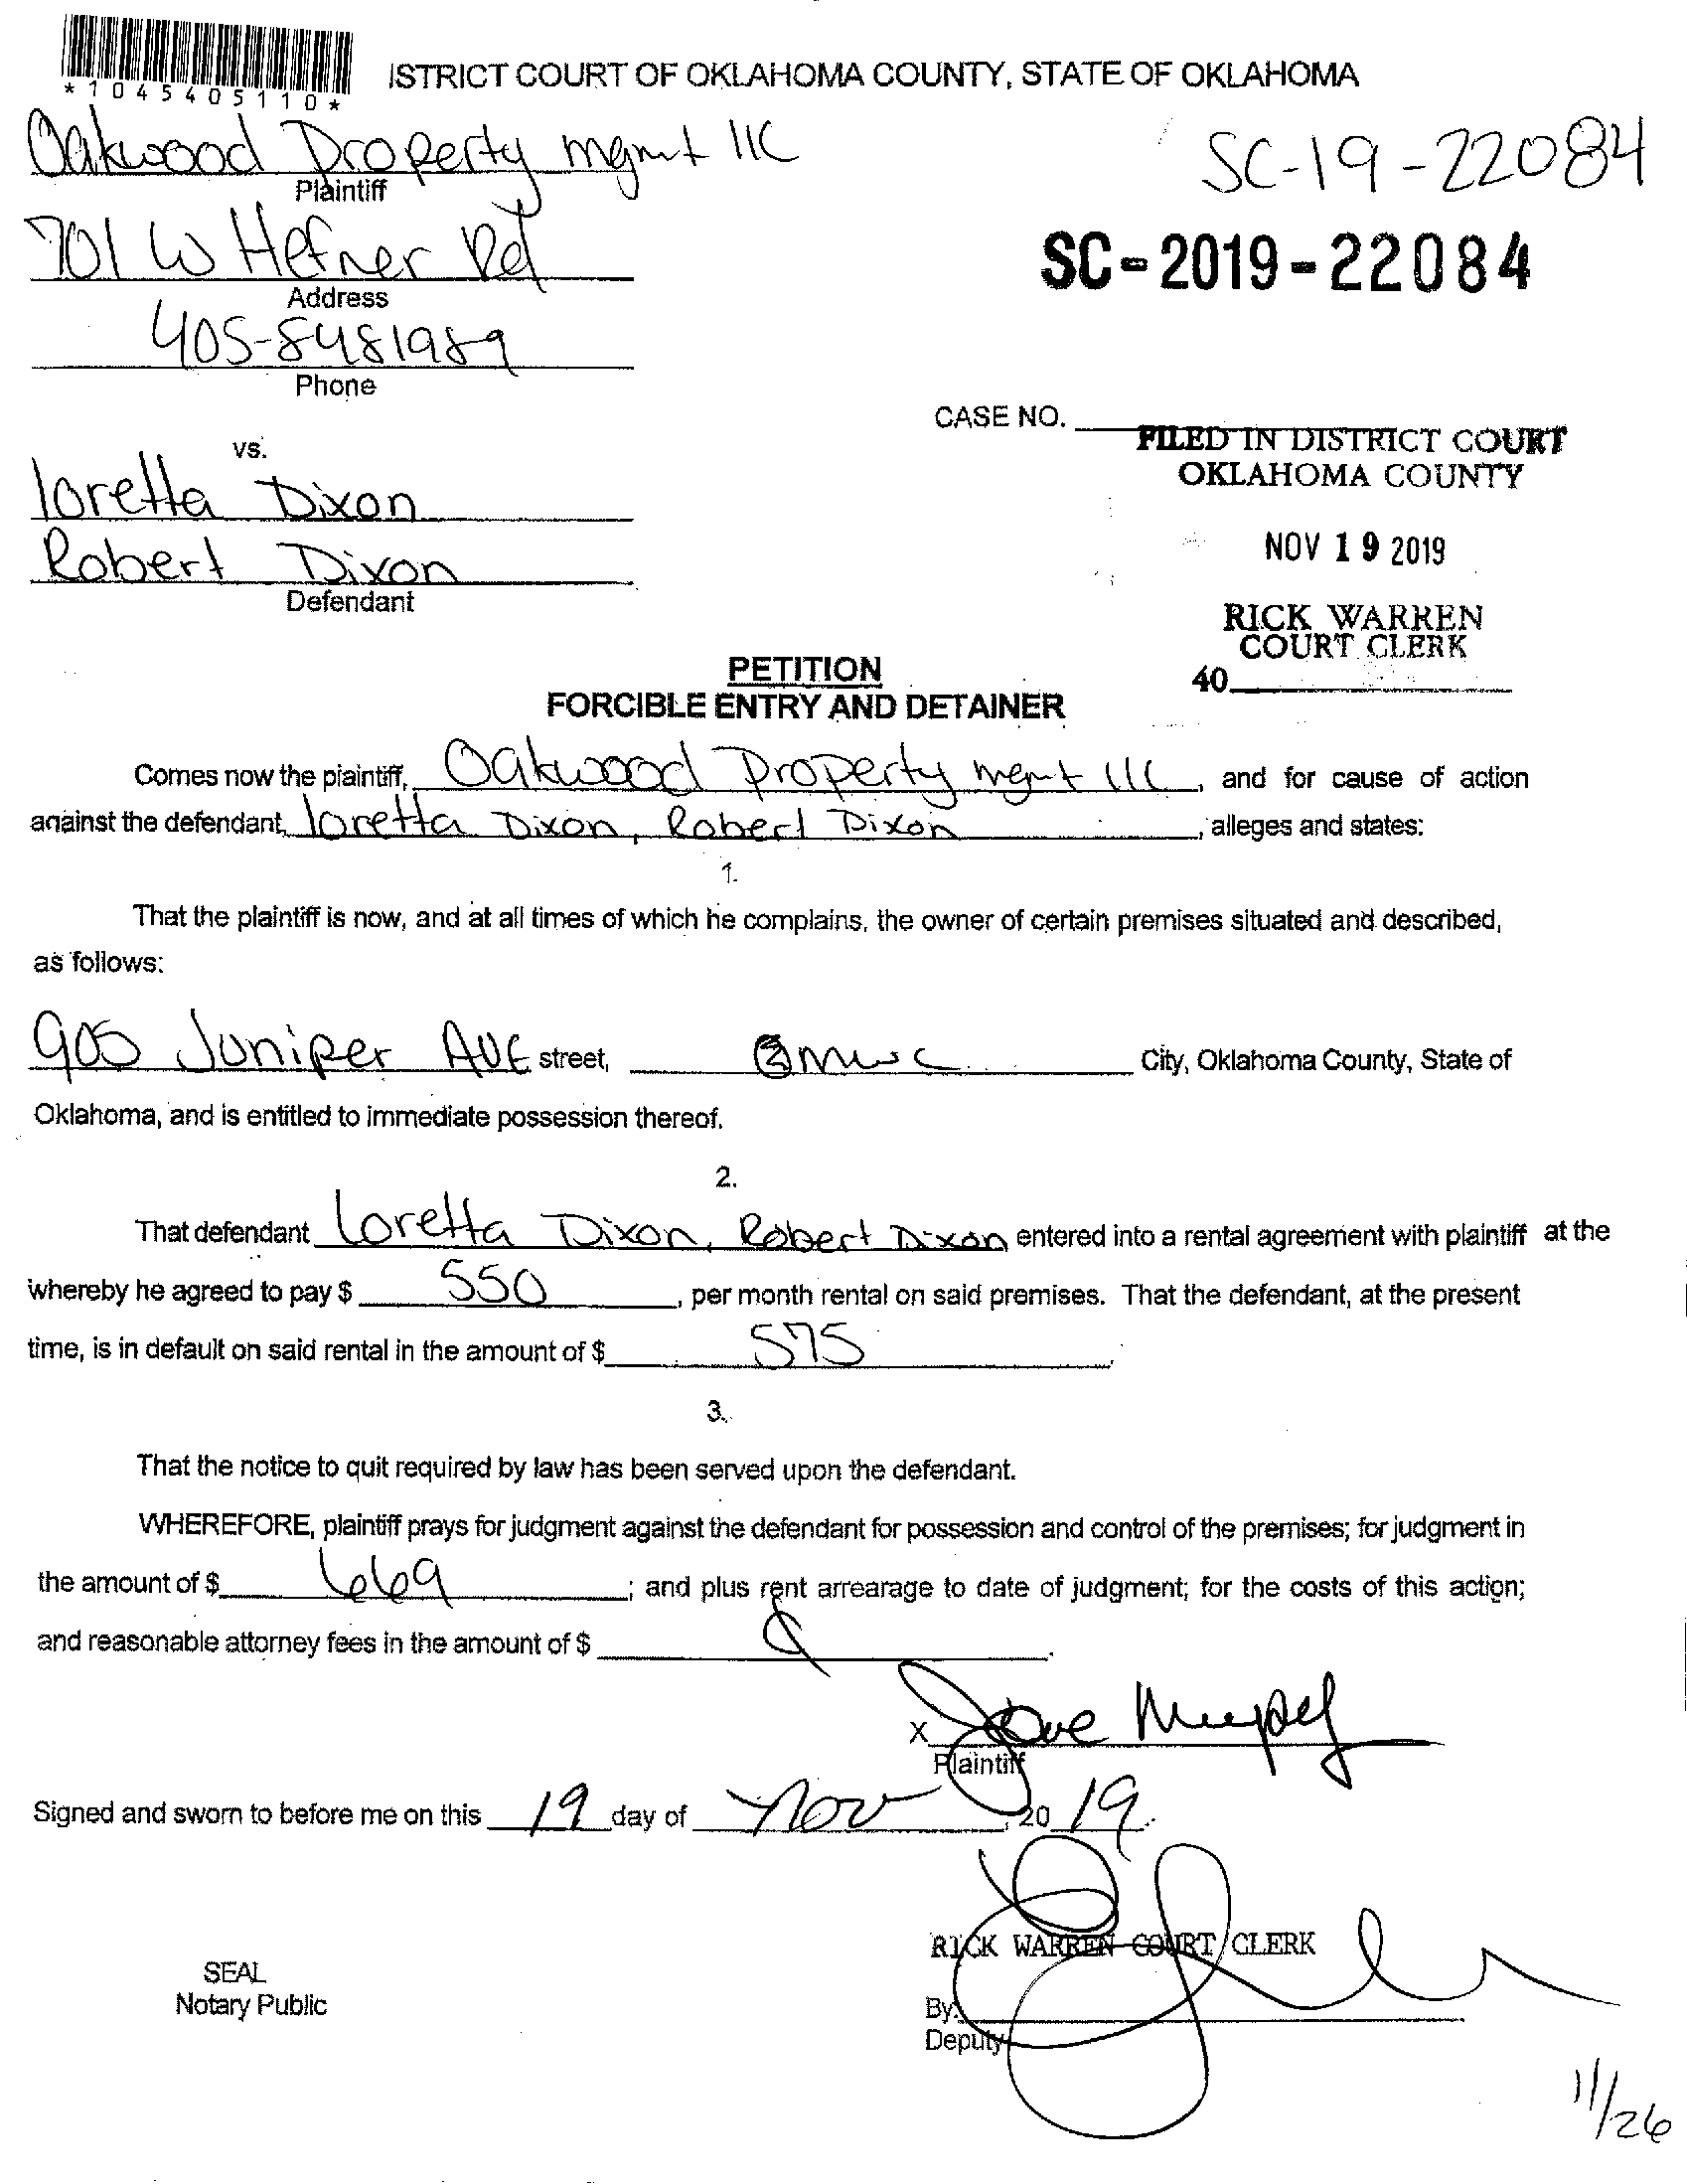 *1045405110*
ISTRICT COURT OF OKLAHOMA COUNTY, STATE OF OKLAHOMA
Oakwood Property mgmt llC
Plaintiff
SC-19-22084
701 W Hefner Rd
Address
SC-2019-22084
405-8481989
Phone
CASE NO.
FILED IN DISTRICT COURT
OKLAHOMA COUNTY
vs.
loretta Dixon
Robert Dixon
Defendant
NOV 19 2019
RICK WARREN
COURT CLERK
40
PETITION
FORCIBLE ENTRY AND DETAINER
Comes now the plaintiff, Oakwood Property mgmt llC, and for cause of action
against the defendant, loretta Dixon, Robert Dixon, alleges and states:
1.
That the plaintiff is now, and at all times of which he complains, the owner of certain premises situated and described,
as follows:
905 Juniper AVE street, mwc City, Oklahoma County, State of
Oklahoma, and is entitled to immediate possession thereof.
2.
That defendant Loretta Dixon, Robert Dixon entered into a rental agreement with plaintiff at the
whereby he agreed to pay $ 550, per month rental on said premises. That the defendant, at the present
time, is in default on said rental in the amount of $ 575.
3.
That the notice to quit required by law has been served upon the defendant.
WHEREFORE, plaintiff prays for judgment against the defendant for possession and control of the premises; for judgment in
the amount of $ 669; and plus rent arrearage to date of judgment; for the costs of this action;
and reasonable attorney fees in the amount of $ .
X
Plaintiff
Signed and sworn to before me on this 19 day of Nov, 20 19.
RICK WARREN COURT CLERK
SEAL
Notary Public
By:
Deputy
11/26